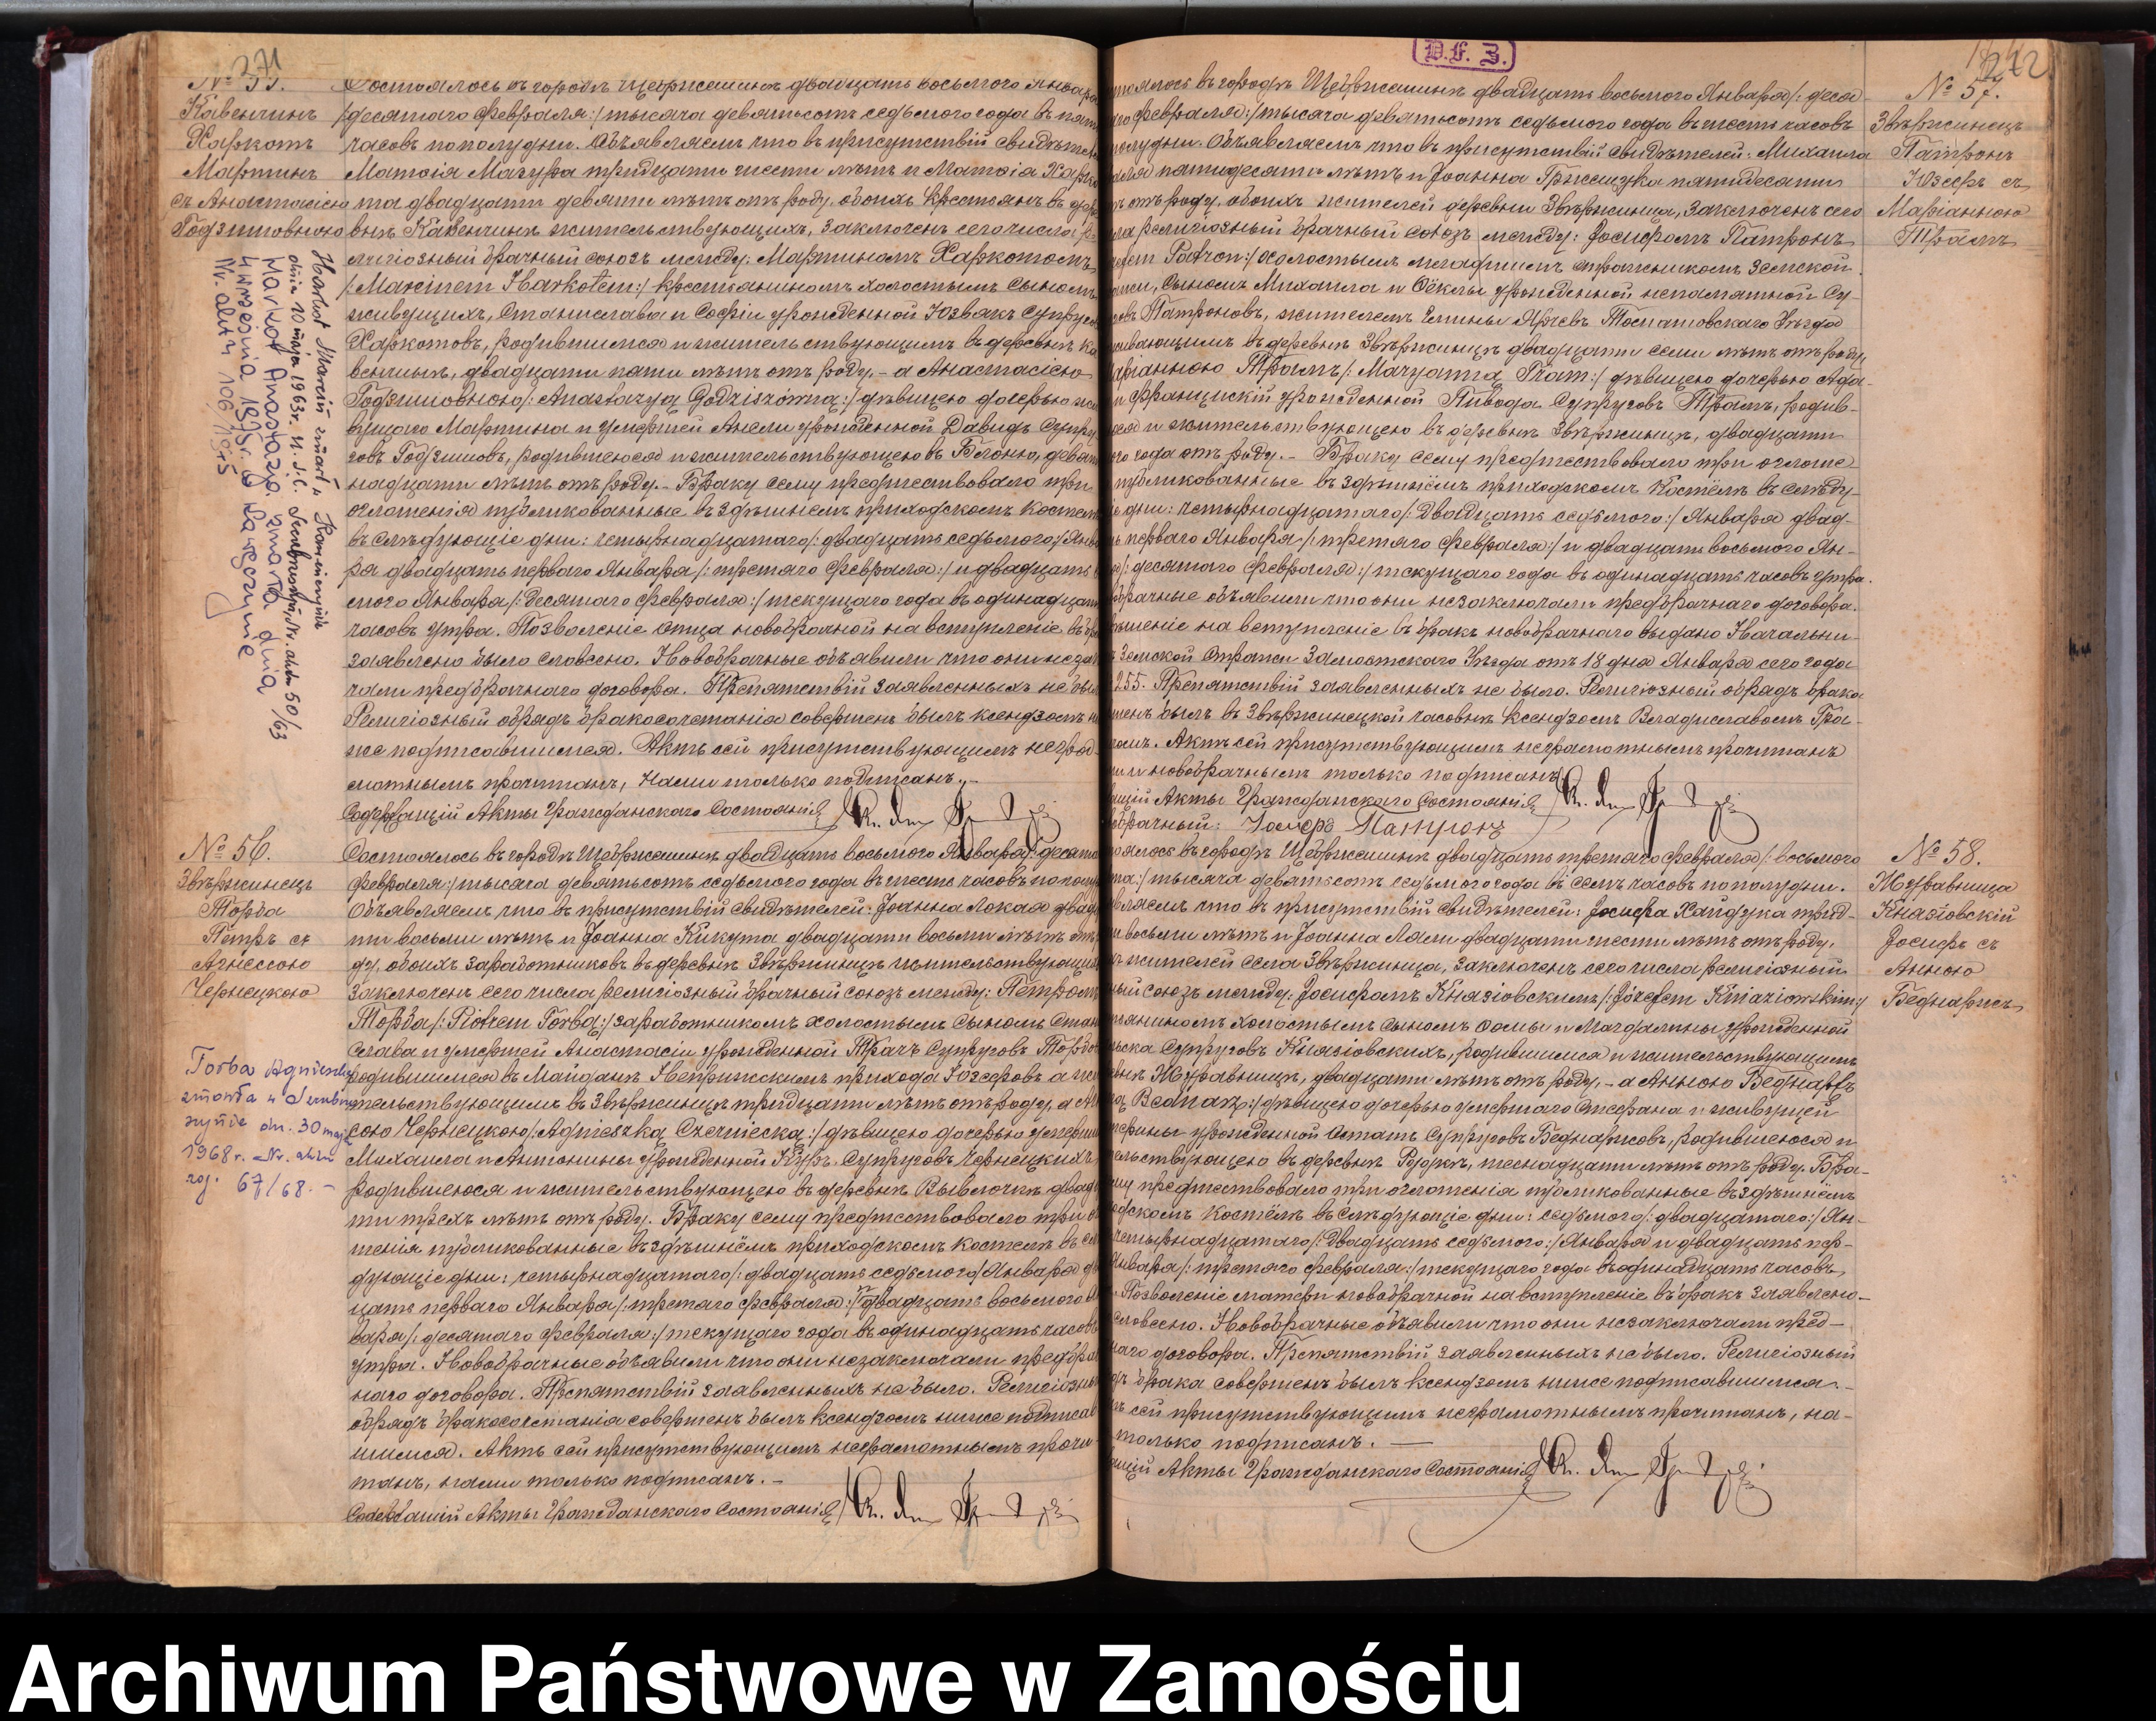 271
№ 55.
Кавенчинъ
Харкотъ
Мартинъ
съ Анастасіею
Годзишовною
Состоялось въ городѣ Щебржешинѣ двадцать восьмого Января
/десятаго Февраля:/ тысяча девятьсотъ седьмого года въ пять
часовъ пополудни. Объявляемъ что въ присутствіи свидѣтелей
Матвія Мазура тридцати шести лѣтъ и Матвія Харко-
та двадцати девяти лѣтъ отъ роду, обоихъ крестьянъ въ дере-
внѣ Кавенчинѣ жительствующихъ, заключенъ сего числа ре-
лигіозный брачный союзъ между: Мартиномъ Харкотомъ
/:Marcinem Harkotem:/ крестьяниномъ холостымъ сыномъ
живущихъ, Станислава и Софіи урожденной Юзвякъ супруговъ
Харкотовъ, родившимся и жительствующимъ въ деревнѣ Ка-
венчинѣ, двадцати пяти лѣтъ отъ роду, - а Анастасіею
Годзишовною /:Anastazyą Godziszówną:/ дѣвицею дочерью жи-
вущаго Мартина и умершей Анели урожденной Давидъ супру-
говъ Годзишовъ, родившеюся и жительствующею въ Блоню, девят-
надцати лѣтъ отъ роду. - Браку сему предшествовало три
оглашенія публикованные въ здѣшнемъ приходскомъ костелѣ
въ слѣдующіе дни: четырнадцатаго /:двадцать седьмого:/ Янва-
ря двадцать перваго Января /:третяго Февраля:/ и двадцать
смого Января /:десятаго Февраля:/ текущаго года въ одинадцать
часовъ утра. Позволеніе отца новобрачной на вступленіе въ бра
заявлено было словесно. Новобрачные объявили что они незаклю
чали предбрачнаго договора. Препятствій заявленныхъ не было
Религіозный обрядъ бракосочетанія совершенъ былъ ксендзомъ ни
же подписавшимся. Актъ сей присутствующимъ негра-
мотнымъ прочитанъ, Нами только подписанъ. -
Содержащій Акты Гражданскаго Состоянія
Harkot Marcin zmarł w
dniu 10 maja 1963r. U.S.C. Nr. aktu 50/63
Harkot Anastazja zmarła dnia
4 września 1975r. w Kawęczynie
Nr. aktu 106/1975
№ 56.
Звѣржинецъ
Торба
Петръ съ
Агнессою
Чернецкою
Состоялось въ городѣ Щебржешинѣ двадцать восьмого Января /:десятаго
Февраля:/ тысяча девятьсотъ седьмого года въ шесть часовъ пополу
Объявляемъ что въ присутствіи свидѣтелей: Іоанна Локая двад
ти восьми лѣтъ и Іоанна Кикута двадцати восьми лѣтъ отъ
ду, обоихъ заработниковъ въ деревнѣ Звѣржинцѣ жительствующихъ
заключенъ сего числа религіозный брачный союзъ между: Петромъ
Торба /:Piotrem Torbą:/ заработникомъ холостымъ сыномъ Стани
слава и умершей Анастасіи урожденной Трачъ супруговъ Торбовъ
родившимся въ Майданѣ Непрыскимъ прихода Юзефовъ а жи
тельствующимъ въ Звѣржинцѣ тридцати лѣтъ отъ роду, а Агнес
сою Чернецкою /:Agnieszką Czerniecką:/ дѣвицею дочерью умерших
Михаила и Антонины урожденной Куръ супруговъ Чернецкихъ
родившеюся и жительствующею въ деревнѣ Вывлочкѣ двадца
ти трехъ лѣтъ отъ роду. Браку сему предшествовало три огла
шенія публикованные въ здѣшнёмъ приходскомъ костелѣ въ слѣ
дующіе дни: четырнадцатаго /:двадцать седьмого:/ Января два
цать перваго Января /:третяго Февраля:/ и двадцать восьмого Ян
варя /:десятаго Февраля:/ текущаго года въ одинадцать часовъ
утра. Новобрачные объявили что они незаключали предбрач
наго договора. Препятствій заявленныхъ не было. Религіозный
обрядъ бракосочетанія совершенъ былъ ксендзомъ ниже подписав
шимся. Актъ сей присутствующимъ неграмотнымъ прочи
танъ, нами только подписанъ. -
Содержащій Акты Гражданскаго Состоянія
Torba Agnieszka
zmarła w
dn. 30 maja
1968r. Nr. aktu
zg. 67/68. -
D.F.Z.
272
№ 57.
Звѣржинецъ
Патронъ
Юзефъ съ
Маріанною
Трамъ
тоялось въ городѣ Щебржешинѣ двадцать восьмого Января /:деся
аго Февраля:/ тысяча девятьсотъ седьмого года въ шесть часовъ
полудни. Объявляемъ что въ присутствіи свидѣтелей: Михаила
аля пятидесяти лѣтъ и Іоанна Гржещука пятидесяти
ъ отъ роду, обоихъ жителей деревни Звѣржинца, заключенъ сего
ла религіозный брачный союзъ между: Іосифомъ Патронъ
zefem Patron:/ холостымъ младшимъ стражникомъ Земской
ажи, сыномъ Михаила и Ѳёклы урожденной непамятной Су-
овъ Патроновъ, жителемъ Гмины Ярчевъ Томашовскаго Уѣзда
ывающимъ въ деревнѣ Звѣржинцѣ двадцати семи лѣтъ отъ роду
аріанною Трамъ /:Maryanną Tram:/ дѣвицею дочерью Ада-
и Францискіи урожденной Пивода супруговъ Трамъ, родив-
ся и жительствующею въ деревнѣ Звѣржинцѣ, двадцати
го года отъ роду. - Браку сему предшествовало три оглаше-
публикованные въ здѣшнёмъ приходскомъ костёлѣ въ слѣду-
е дни: четырнадцатаго /:двадцать седьмого:/ Января двад-
ь перваго Января /:третяго Февраля:/ и двадцать восьмого Ян-
я /:десятаго Февраля:/ текущаго года въ одинадцать часовъ утра.
брачные объявили что они незаключали предбрачнаго договора.
ешеніе на вступленіе въ бракъ новобрачнаго выдано Начальни-
ъ Земской Стражи Замостскаго Уѣзда отъ 18 дня Января сего года
255. Препятствій заявленныхъ не было. Религіозный обрядъ брака
шенъ былъ въ Звѣржинецкой часовнѣ ксендзомъ Владиславомъ Гра-
омъ. Актъ сей присутствующимъ неграмотнымъ прочитанъ
ми и новобрачнымъ только подписанъ
ащій Акты Гражданскаго Состоянія
обрачный: Іосифъ Патронъ
№ 58.
Журавница
Князіовскій
Іосифъ съ
Анною
Беднаржъ
оялось въ городѣ Щебржешинѣ двадцать третяго Февраля /:восьмого
та:/ тысяча девятьсотъ седьмого года въ семь часовъ пополудни.
вляемъ что въ присутствіи свидѣтелей: Іосифа Хайдука трид-
и восьми лѣтъ и Іоанна Ляли двадцати шести лѣтъ отъ роду,
ъ жителей села Звѣржинца, заключенъ сего числа религіозный
ный союзъ между: Іосифомъ Князіовскимъ /:Józefem Kniaziowskim:/
тьяниномъ холостымъ сыномъ Ѳомы и Магдалины урожденной
ьска супруговъ Князіовскихъ, родившимся и жительствующимъ
внѣ Журавницѣ, двадцати лѣтъ отъ роду, - а Анною Беднаржъ
ą Bednarz:/ дѣвицею дочерью умершаго Стефана и живущей
терины урожденной Остатъ супруговъ Беднаржовъ, родившеюся и
ельствующею въ деревнѣ Рудкѣ, шеснадцати лѣтъ отъ роду. Бра-
му предшествовало три оглашенія публикованные въ здѣшнёмъ
одскомъ костёлѣ въ слѣдующіе дни: седьмого /:двадцатаго:/ Ян-
четырнадцатаго /:двадцать седьмого:/ Января и двадцать пер-
Января /:третяго Февраля:/ текущаго года въ одинадцать часовъ,
. Позволеніе матери новобрачной на вступленіе въ бракъ заявлено
словесно. Новобрачные объявили что они незаключали пред-
наго договора. Препятствій заявленныхъ не было. Религіозный
дъ брака совершенъ былъ ксендзомъ ниже подписавшимся. -
ъ сей присутствующимъ неграмотнымъ прочитанъ, на-
только подписанъ. -
ащій Акты Гражданскаго Состоянія
Archiwum Państwowe w Zamościu